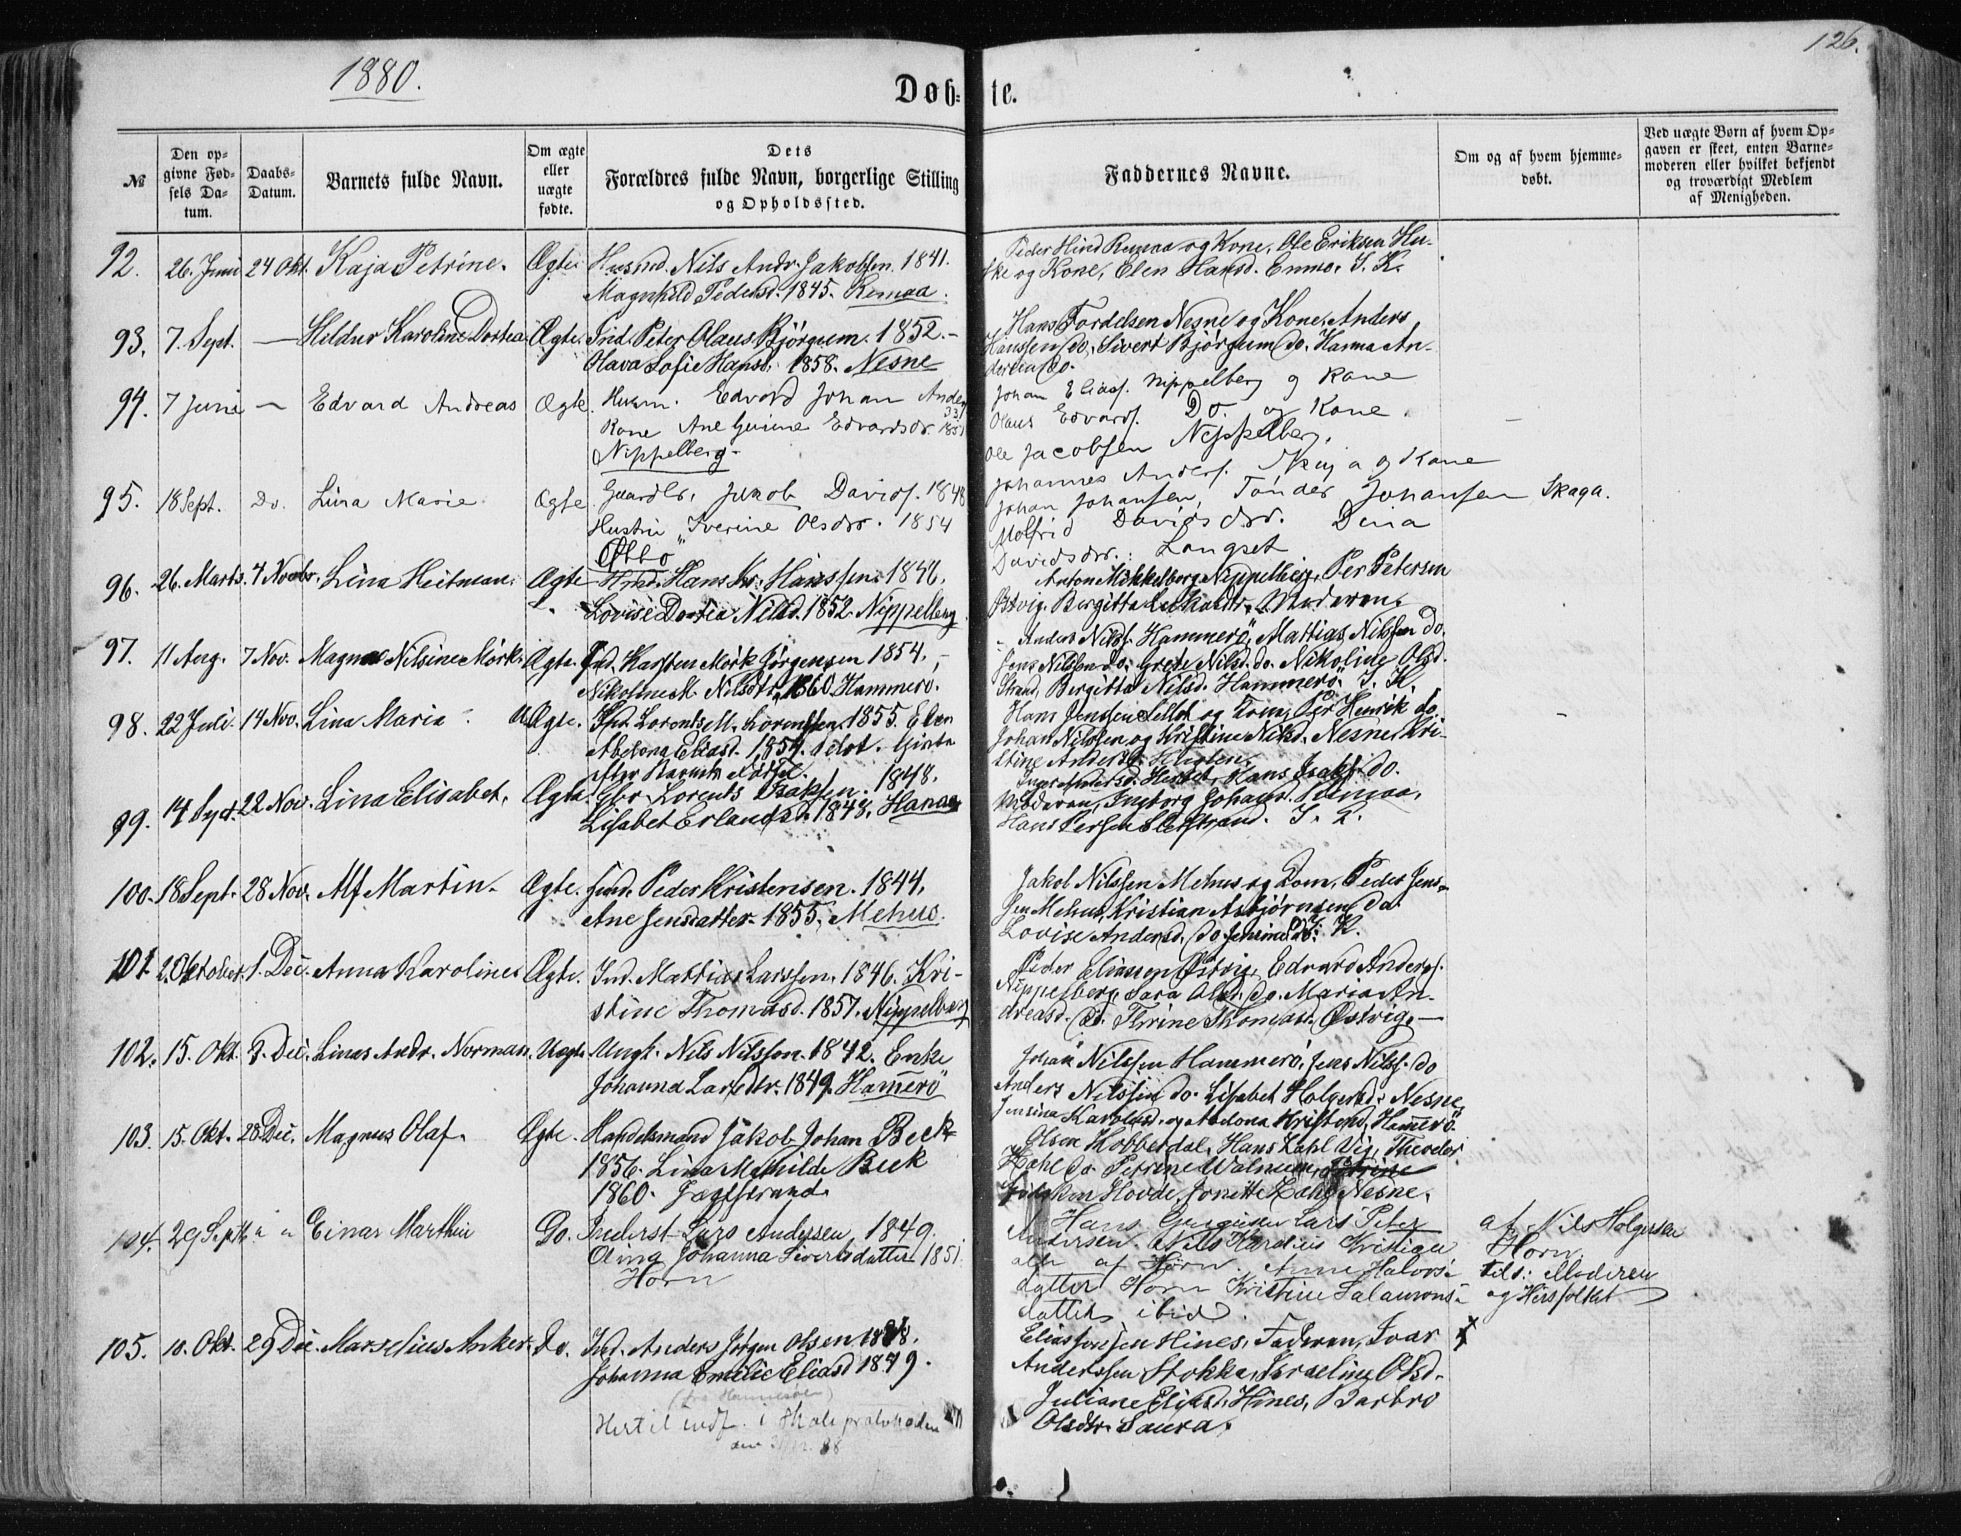 1880.
126.
Døb-
te.
№
Den op-
givne Fød-
sels Da-
tum.
Daabs-
Datum.
Barnets fulde Navn.
Om ægte
eller
uægte
fødte.
Dets
Forældres fulde Navn, borgerlige Stilling
og Opholdssted.
Faddernes Navne.
Om og af hvem hjemme-
døbt.
Ved uægte Børn af hvem Op-
gaven er skeet, enten Barne-
moderen eller hvilket bekjendt
og troværdigt Medlem
af Menigheden.
92. 26. Juni 24 Okt. Kaja Petrine. Ægte Husmd. Nils Andr. Jakobsen. 1841.
Magnhild Pedersd. 1845. Remaa.
Peder Hind Remaa og Kone, Ole Eriksen Hu-
ske og Kone, Elen Hansd. Enmo. I. K.
93. 7. Sept. — Hildur Karoline Dortea Ægte. Ind. Peter Olaus Bjørgum. 1852. -
Hava Sofie Hansd. 1858. Nesne
Hans Tordelsen Nesne og Kone, Anders
Hanssen do, Sivert Bjørgum do. Hanna An-
dersen do.
94. 7 Juni — Edvard Andreas Ægte. Husm. Edvard Johan Anders
Kone Ane Edvardsdr. 1851
Nippelberg.
Johan Eliass. Nippelberg og Kone
Olaus Edvards. Do. og Kone.
Ole Jacobsen Nippelberg,
Johannes Anders. og Kone
95. 18 Sept. Do. Lina Marie Ægte Gaardbr. Jakob Davids. 1848
Hustru Iverine Olsdr. 1854
Øbbo
Johan Johansen, Tønder Johansen
Molfrid Davidsdr. Dina
Davidsdr.: Langset
Skaga.
96. 26. Marts. 4 Novbr. Lina Heitman. Ægte Hans Kr. Hanssen. 1846.
Lovise Dortea Nilsd. 1852. Nippelberg
Anton Mikkelborg Nippelberg, Per Petersen
Østvig. Bergitta Moderen.
97. 11 Aug. 7 Nov. Magna Nilsine Mørk. Ægte. Ind. Karsten Mørk Jørgensen 1854. -
Nikoline M. Nilsdtr. 1860. Hammerø.
Anders Nilss. Hammerø, Mattias Nilssen do.
Jens Nilssen do. Grete Nilsd. do. Nikoline Olsd.
Strand, Bergitta Nilsd. Hammerø. I. K.
98. 22 Juli. 14 Nov. Lina Maria. Uægte. Ind. Lorents M. Lorentsen. 1855. Elen
Abelona Eliasd. 1854. Selot. Givta
efter Barnets Fødsel.
Hans Jenssen Selot og Kone, Per Henrik do.
Johan Nilssen og Kristine Nilsd. Nesne, Kri-
stine Andersd.
99. 14 Sept. 22 Nov. Lina Elisabet. Ægte. Lorents Isaksen. 1848.
Lisabet Erlandsd. 1848. Hanaa
Andersd. Hans Isaks. do.
Moderen, Ingborg Johansd. Remaa,
Hans Persen
100. 18 Sept. 28 Nov. Alf Martin. Ægte. Ind. Peder Kristensen. 1844.
Ane Jensdatter. 1855. Mehus.
Jakob Nilssen Mehus og Kone, Peder Jens-
sen Mehus, Kristian Asbjørnsen do.
Lovise Andersd. do. Jensine do. I. K.
101. 2. Oktober 1. Dec. Anna Karolines Ægte. Ind. Mattias Larssen. 1846. Kri-
stine Thomasd. 1857. Nippelberg
Peder Eliassen Østvig, Edvard Anders.
Nippelberg, Sara Olsd. do. Maria An-
dreasd. do. Thrine Thomasd. Østvig. —
102. 15. Okt. 9. Dec. Linus Andr. Norman. Uægte Ungk. Nils Nilsson. 1842. Enke
Johanna Larsdtr. 1849. Hammerø
Johan Nilssen Hammerø, Jens Nilss. do
Anders Nilssen do. Lisabet Holgersd. Nesne,
Jensina Karolusd. og Abelona Kristensd. Hammerø.
103. 15. Okt. 28 Dec. Magnus Olaf. Ægte. Handelsmand Jakob Johan Beck
1856. Lina Mathilde Beck
1860. Jægtstrand.
Olsen Kobberdal, Hans Zahl Vig, Theodor
Zahl do. Petrine Walnum,
Hovde, Jonette Zahl Nesne.
104. 29 Septb. " " Einar Marthin Do. Inderst Lars Andersen 1849.
Olina Johanna Sivertsdatter 1851
Horn
Hans Lars Peter
Andersen. Nils Kristian
alle af Horn. Anne Halvors-
datter Horn Kristine Salamons-
datter ibid.
af Nils Holgersen
Horn.
tils: Moderen
og Husfolket
105. 10. Okt. 29 Dec. Marselius Anker. Do. Ind. Anders Jørgen Olsen 1848.
Johanna Emilie Eliasd 1849.
(fra Hannesøen)
Hertil indf. i Skoleprotokollen
den 31/12. 88
Elias Jensen Hines, Faderen, Ivar
Anderssen Stokka, Israeline Olsd.
Juliane Eliasd. Hines, Barbro
Olsdtr. Saura.